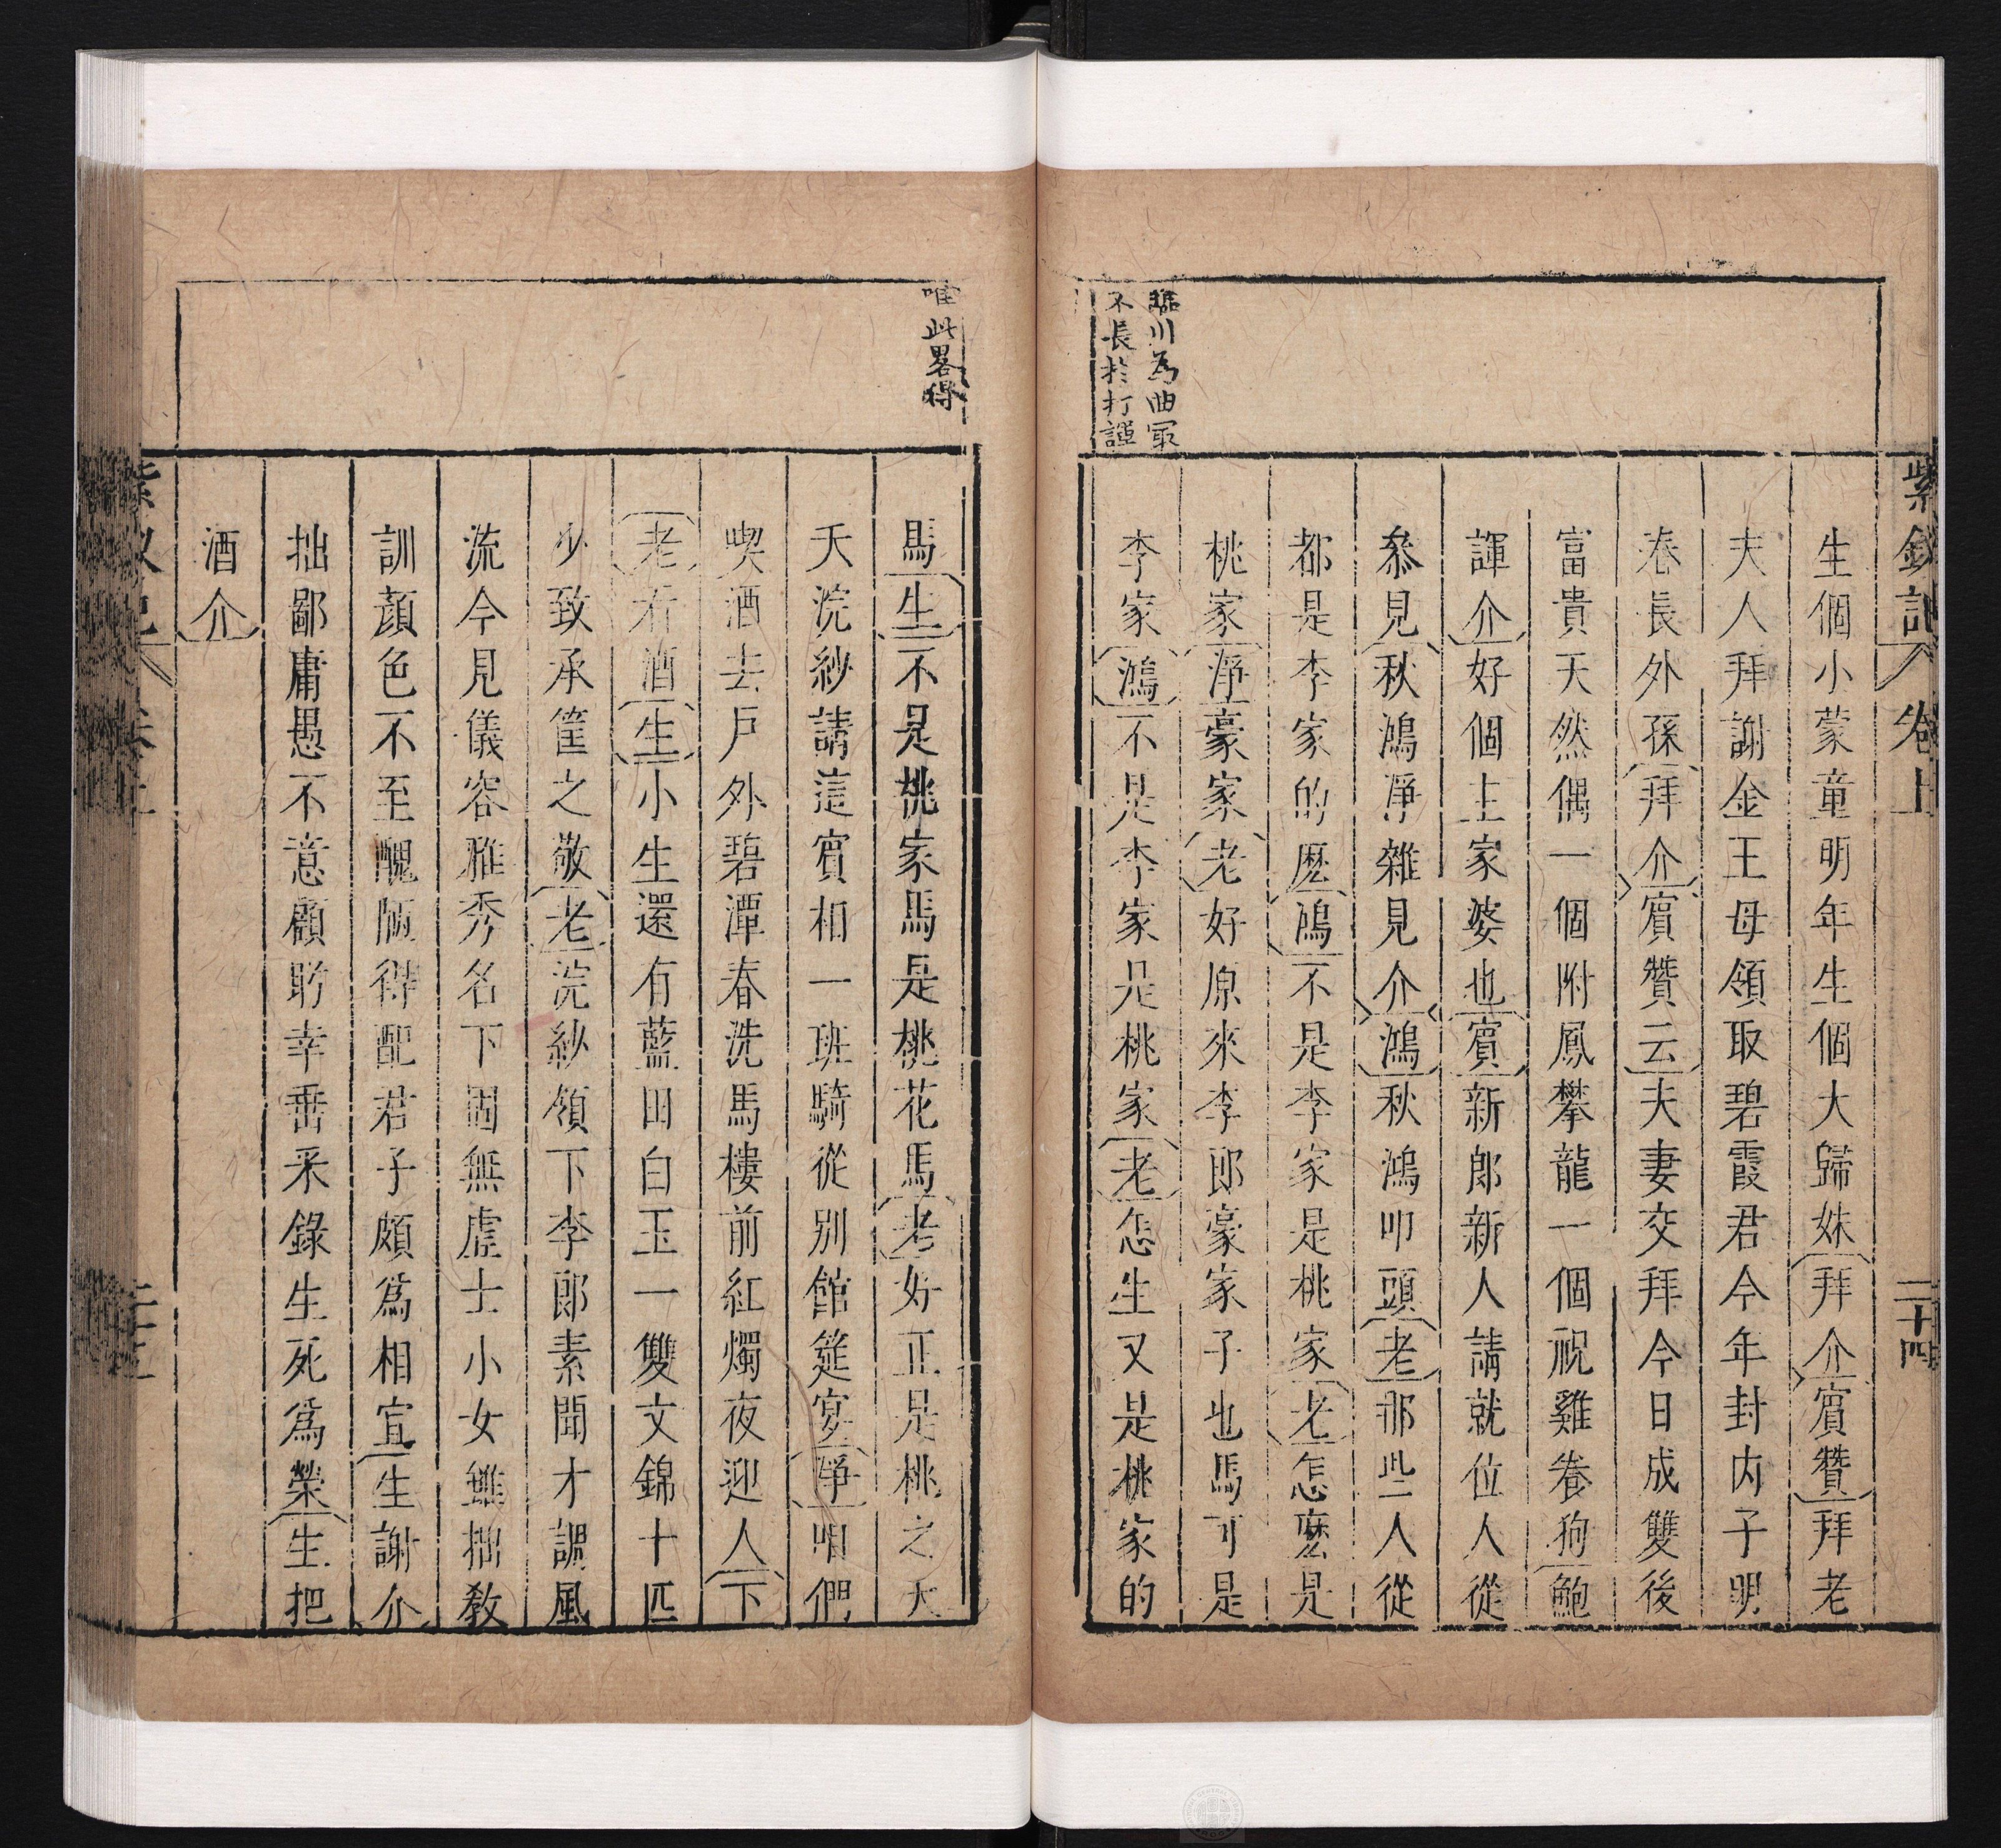 紫釵記 卷上 二十四
臨川為曲最
不長於打諢
生個小蒙童明年生個大歸妹拜介賓贊拜老
夫人拜謝金王母領取碧霞君今年封内子明
春長外孫拜介賓贊云夫妻交拜今日成雙後
富貴天然偶一個附鳳攀龍一個祝雞養狗鮑
諢介好個主家婆也賓新郎新人請就位人從
叅見秋鴻淨雜見介鴻秋鴻叩頭老那些人從
都是李家的麽鴻不是李家是桃家老怎麽是
桃家淨豪家老好原來李郎豪家子也馬可是
李家鴻不是李家是桃家老怎生又是桃家的
唯此畧得
馬生不是桃家馬是桃花馬老好正是桃之夭
夭浣紗請這賓相一班騎從别館筵宴淨咱們
喫酒去戶外碧潭春洗馬樓前紅燭夜迎人下
老看酒生小生還有藍田白玉一雙文錦十匹
少致承筐之敬老浣紗領下李郎素聞才調風
流今見儀容雅秀名下固無虛士小女雖拙教
訓顔色不至醜陋得配君子頗爲相宜生謝介
拙鄙庸愚不意顧盻幸垂采錄生死爲榮生把
酒介